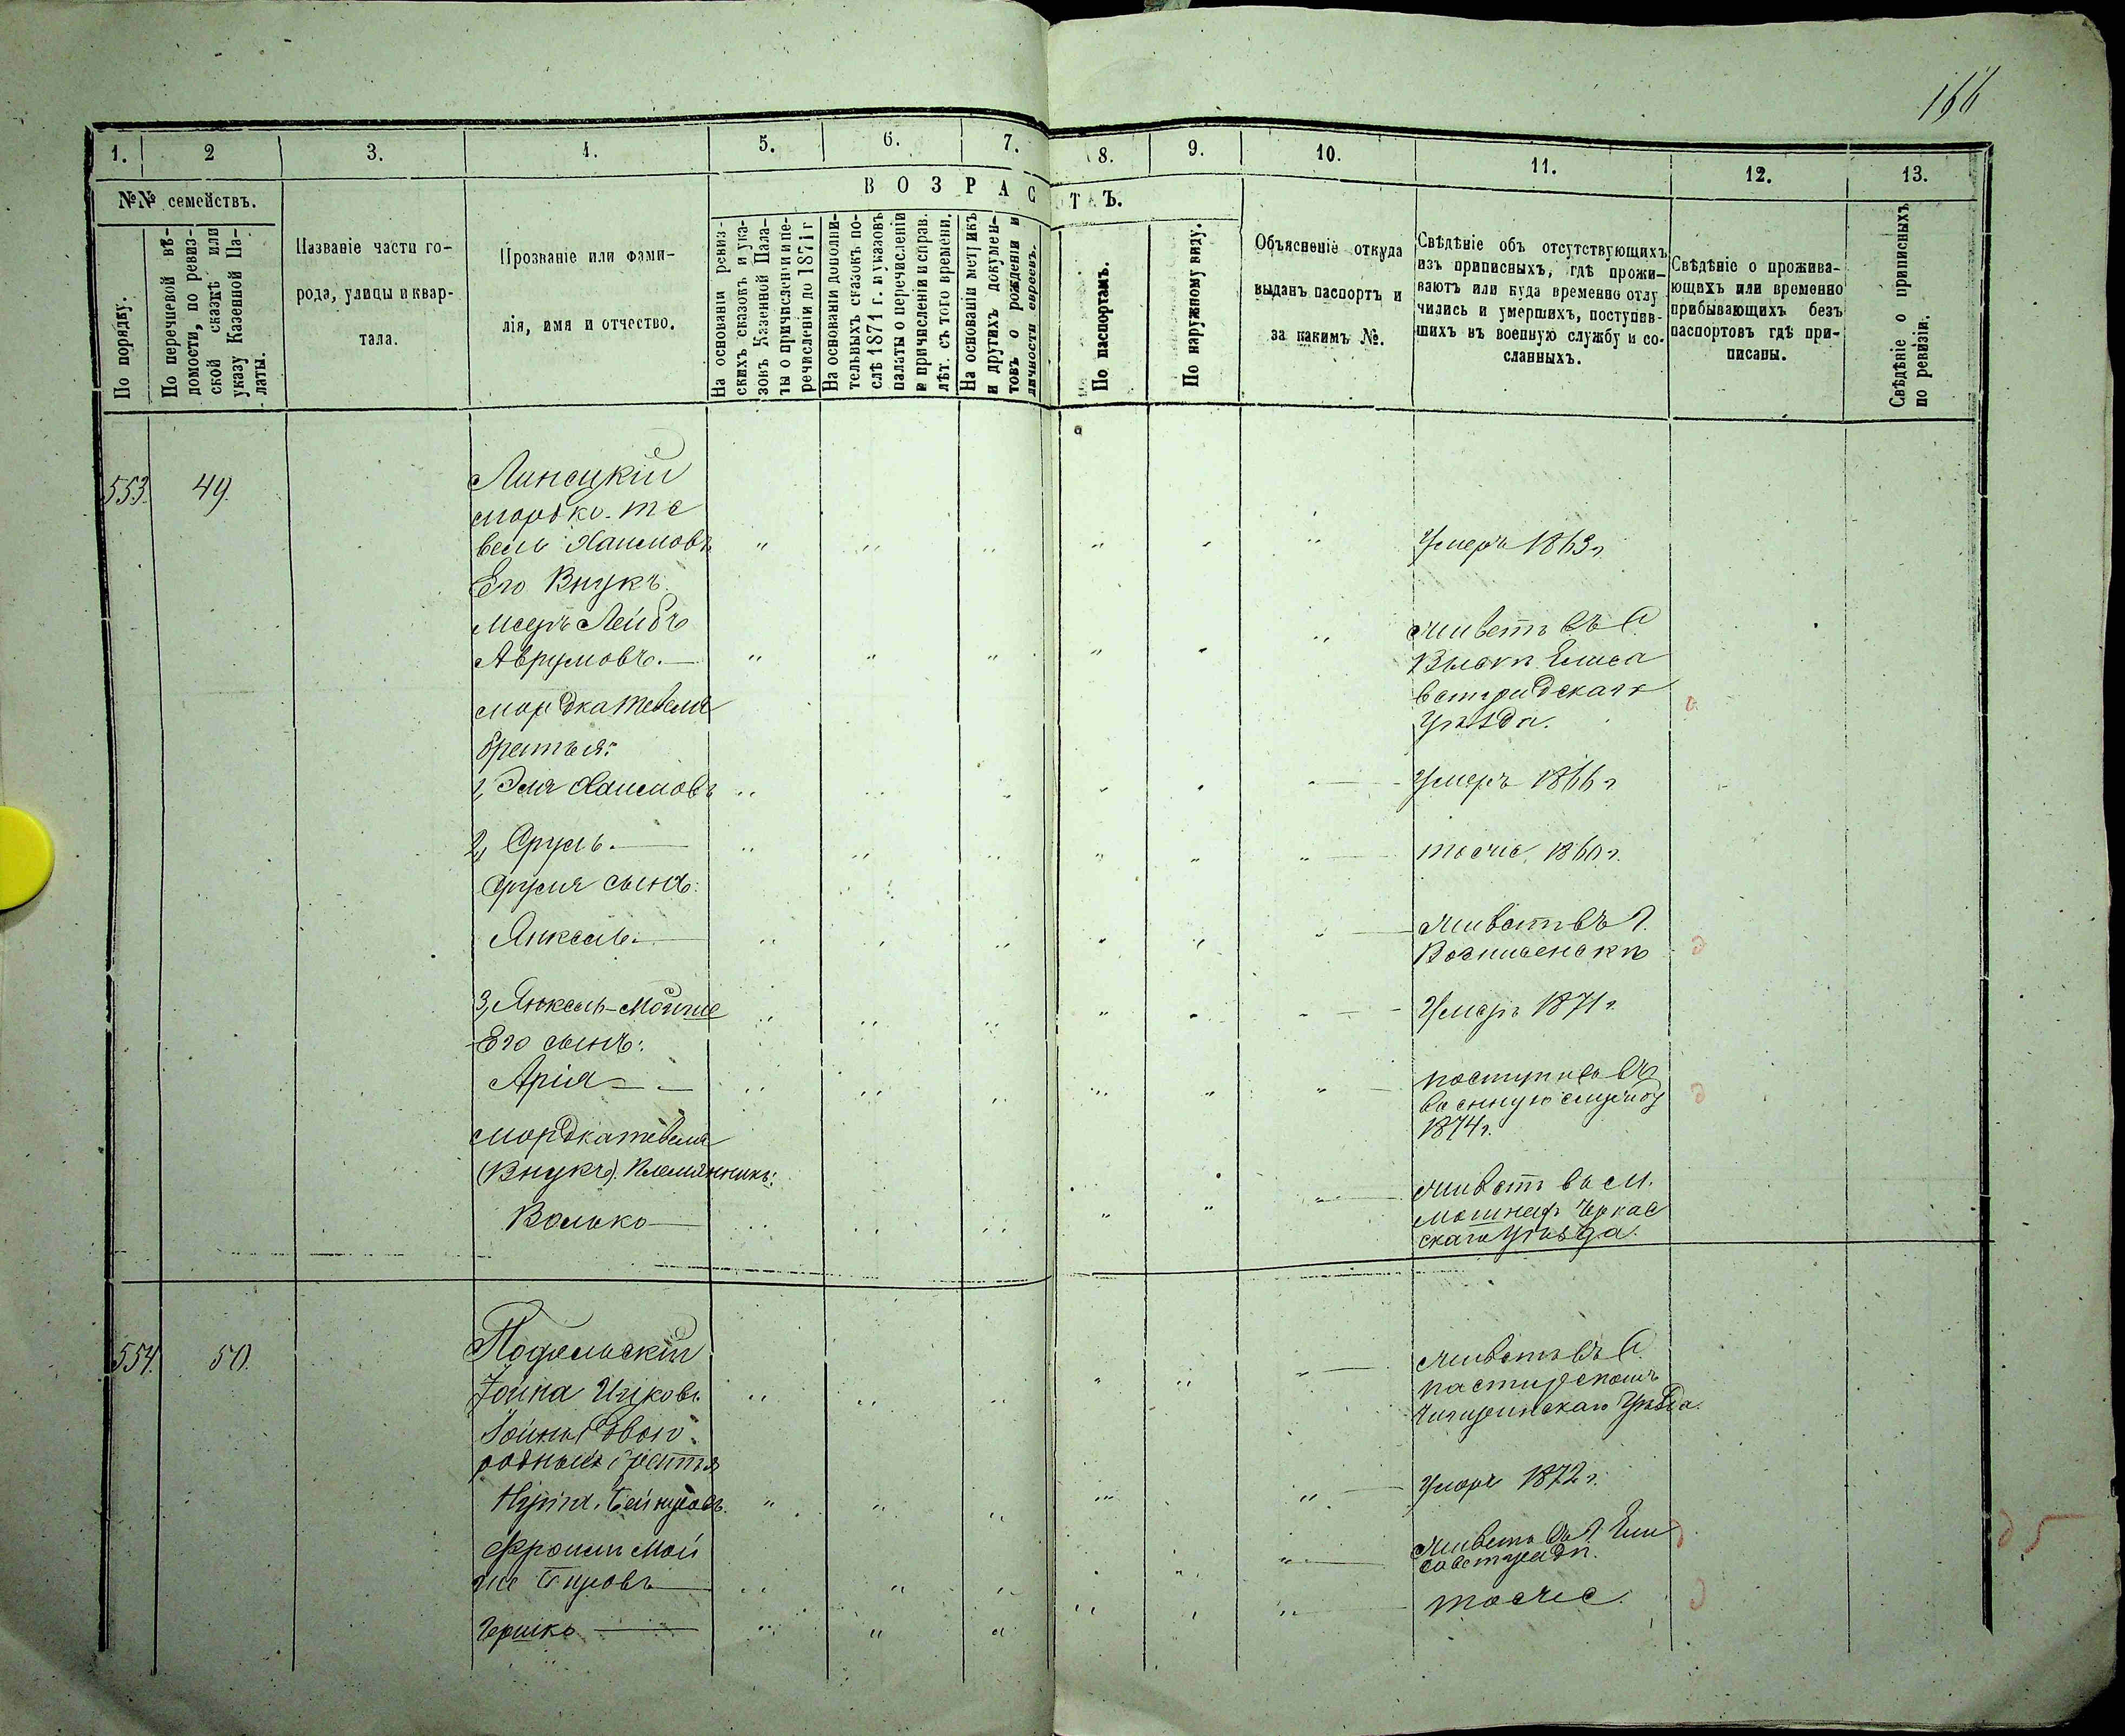 166
1. 2 3. 4. 5. 6. 7. 8. 9. 10. 11. 12. 13.
№№ семействъ.
ВОЗРАСТЪ.
По порядку.
По перечневой вѣ-
домости, по ревиз-
ской сказкѣ или
указу Казенной Па-
латы.
Названіе части го-
рода, улицы и квар-
тала.
Прозваніе или фами-
лія, имя и отчество.
На основаніи ревиз-
скихъ сказокъ и ука-
зовъ Казенной Пала-
ты о причисленіи и пе-
речисленіи до 1871 г
На основаніи дополни-
тельныхъ сказокъ по-
слѣ 1871 г. и указовъ
палаты о перечисленіи
и причисленіи и справ.
лѣт. съ того времени.
На основаніи метрикъ
и другихъ докумен-
товъ о рожденіи и
личности евреевъ.
По паспортамъ.
По наружному виду.
Объясненіе откуда
выданъ паспортъ и
за какимъ №.
Свѣдѣніе объ отсутствующихъ
изъ приписныхъ, гдѣ прожи-
ваютъ или куда временно отлу
чились и умершихъ, поступив-
шихъ въ военную службу и со-
сланныхъ.
Свѣдѣніе о прожива-
ющихъ или временно
прибывающихъ безъ
паспортовъ гдѣ при-
писаны.
Свѣдѣніе о приписныхъ
по ревизіи.
553. 49.
Липецкій
Мордко-Те
вель Хаимовъ
Умеръ 1863 г.
Его Внукъ
Мееръ Лейбъ
Аврумовъ.
Живетъ въ С.
Елиса
ветградскаго
Уѣзда.
Мордка Тевеля
братья:
1, Эля Хаимовъ
Умеръ 1866 г
2, Сруль.
тоже 1860 г.
Сруля сынъ:
Янкель.
Живетъ въ г.
Вознесенскѣ
3, Янкель-Мойше
Умеръ 1871 г.
Его сынъ:
Арія
поступилъ въ
военную службу
1874 г.
Мордка тевеля
(Внукъ) Племянникъ:
Волько
Живетъ въ м.
Мошнахъ Черкас
скаго Уѣзда.
554. 50.
Подольскій
Іойна Ицковъ
Живетъ въ С.
пастырскомъ
Чигиринскаго Уѣзда.
Іойны двою
родныя братья
Умеръ 1872 г.
Фроим Мой
ше
Живетъ въ г. Ели
саветградѣ.
Гершко
тоже.